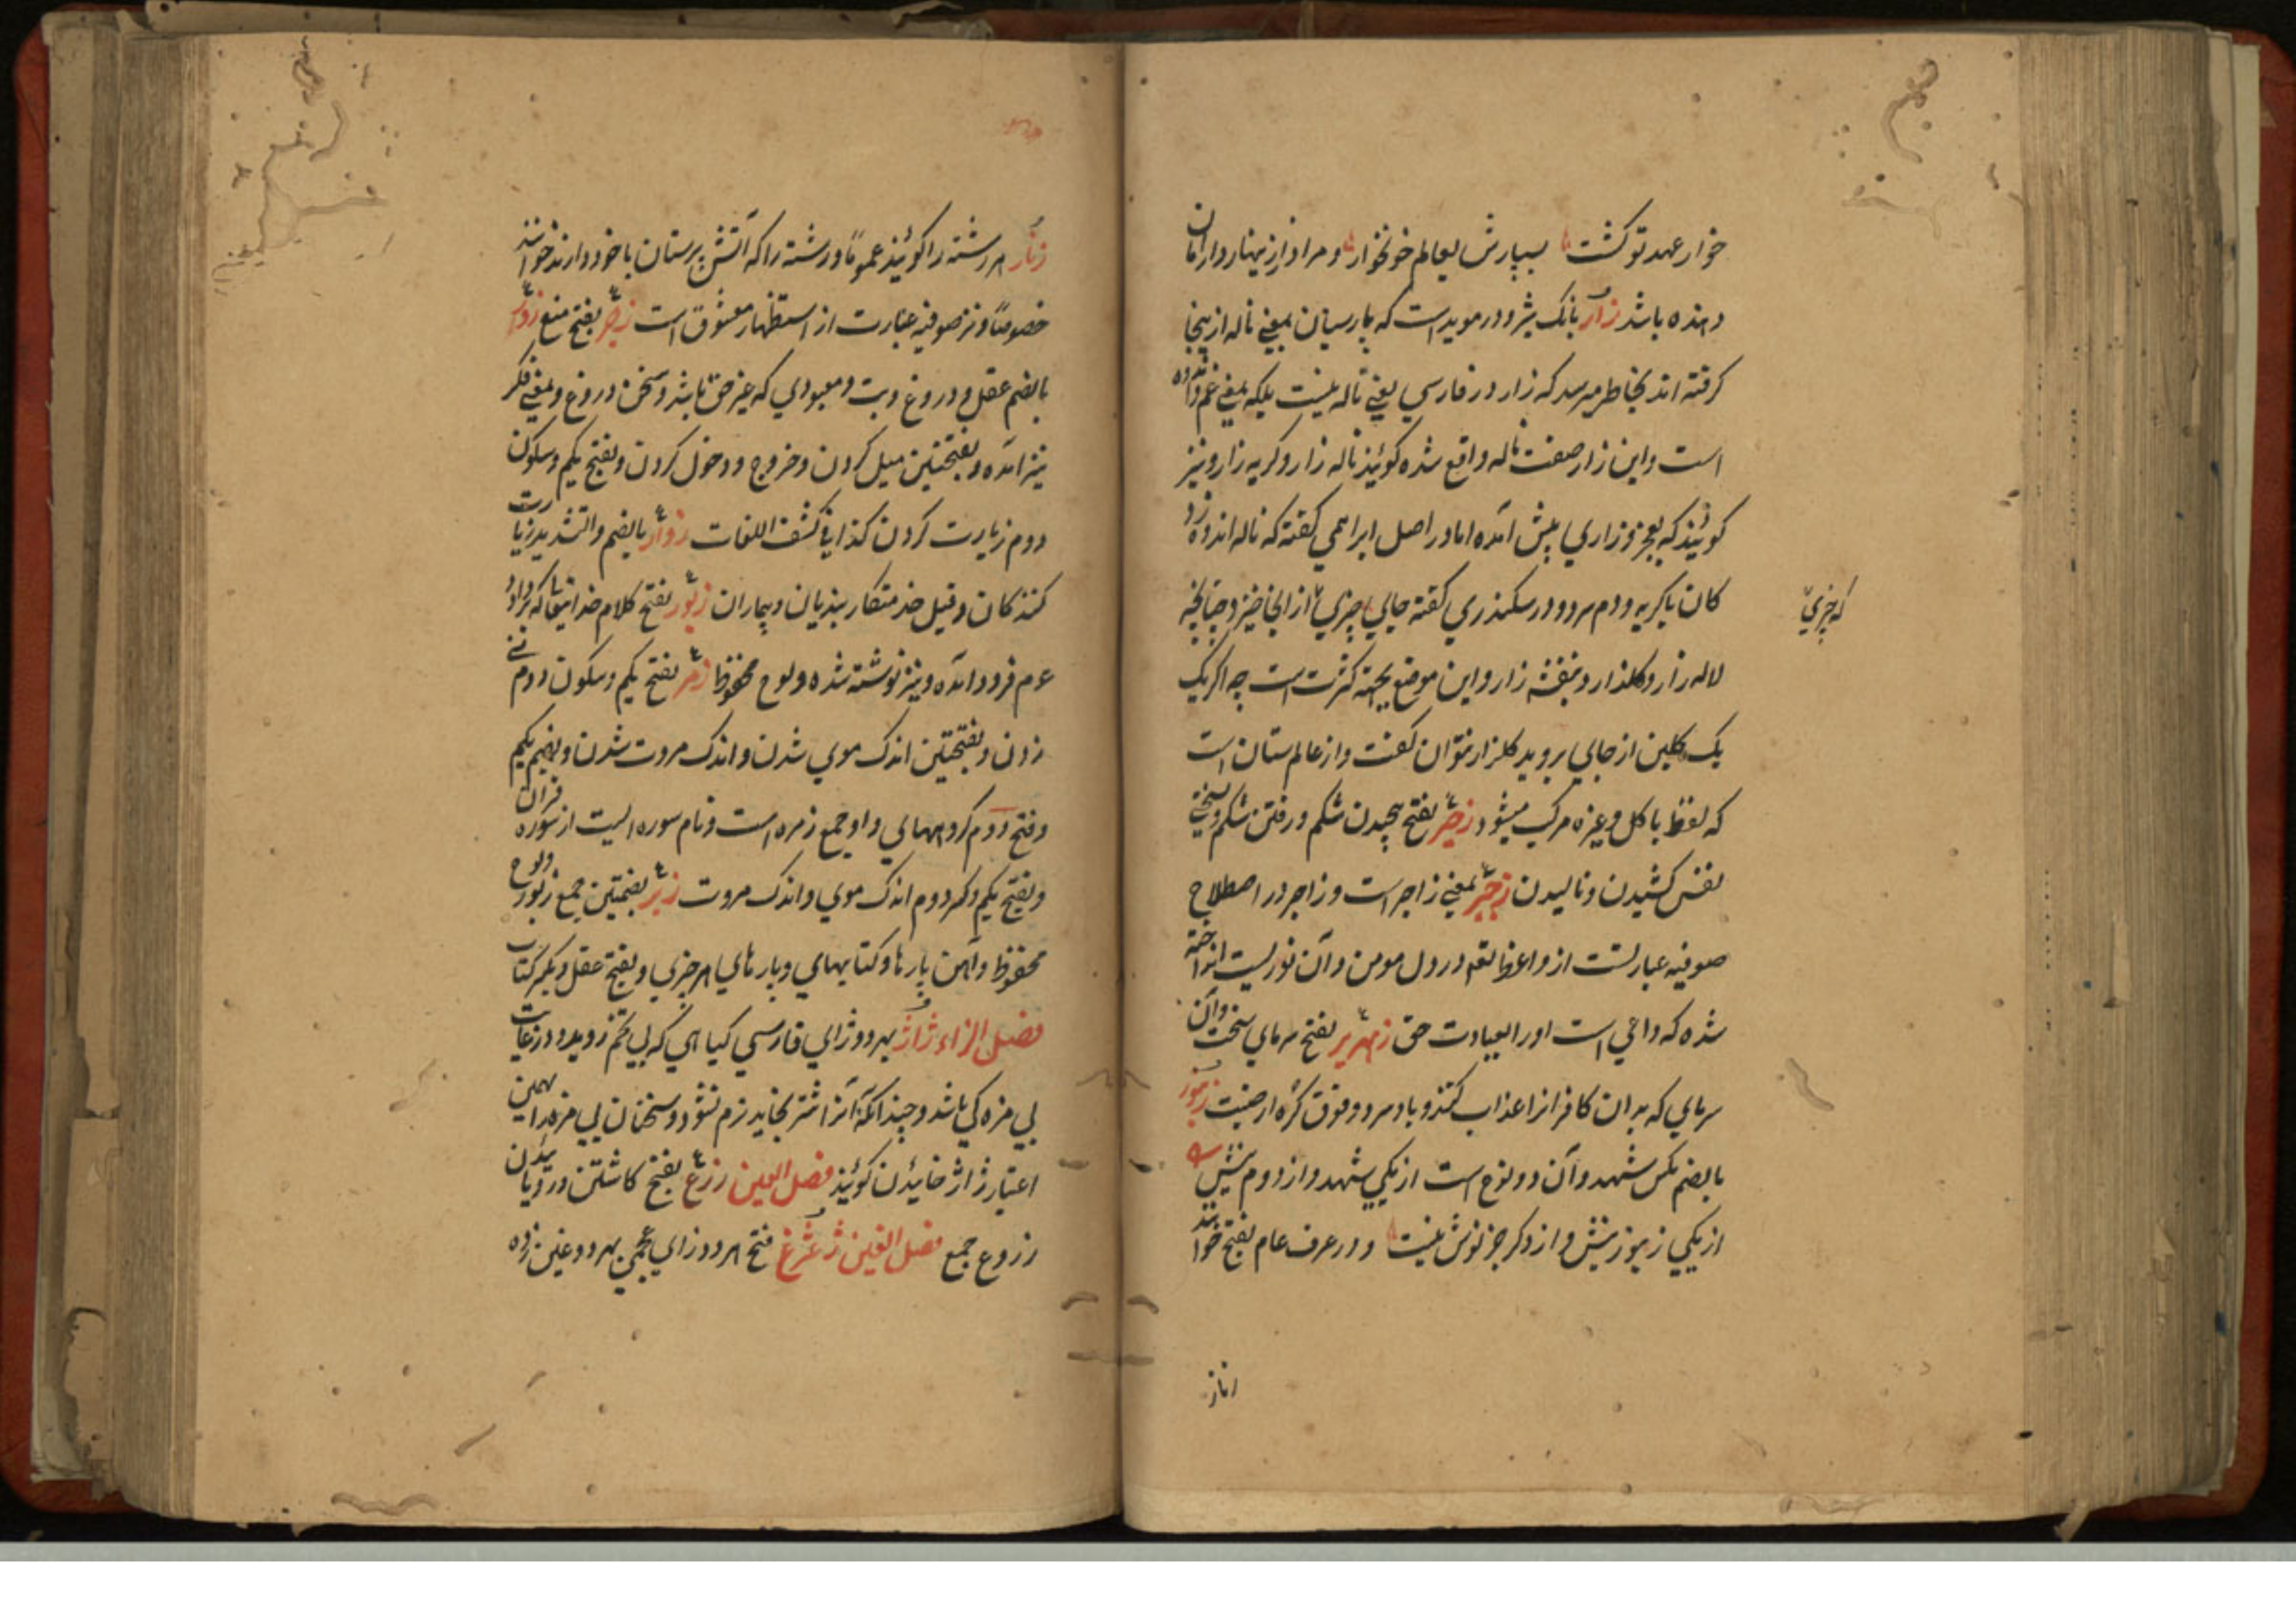 خوار عهد تو کشت بسپارش بعالم خونخوار و مراد از زینهاردار امان
دهنده باشد زأر بانک شیر و در موید است که پارسیان بمعنی ناله ازینجا
کرفته اند بخاطر میرسد که زار در فارسی بمعنی ناله نیست بلکه بمعنی غم و اندوه
است و این زار صفت ناله واقع شده کویند ناله زار و کریه زار و نیز
کویند که بعجز و زاری پیش آمده اما در اصل ابراهمی کفته که ناله اندوه زد
کان با کریه و دم سرد و در سکندری کفته جایی چیزی از انجا خیزد چنانچه
که چیزی
لاله زار و کلزار و بنفشه زار و این موضع بجهة کثرت است چه اکر یک
یک کلبن از جایی بروید کلزار نتوان کفت و از عالم ستان است
که لفظ با کل و غیره مرکب میشود زحیر بفتح پیچیدن شکم و رفتن شکم و بسختی
نفس کشیدن و نالیدن زجر بمعنی زاجر است و زاجر در اصطلاح
صوفیه عبارتست از واعظ الله در دل مومن و آن نوریست انداخته
شده که داعی است او را بعبادت حق زمهریر بفتح سرمای سخت و آن
سرمای که بدان کافرانرا عذاب کنند و باد سرد و فوق کره ارضیت زنبور
بالضم مکس شهد و آن دو نوع است از یکی شهد و از دوم نیش
از یکی زنبور نیش و از دکر جز نوش نیست و در عرف عام بفتح خوانند
زنار
زنار هر رشته را کویند عموماً و رشته را که آتش پرستان با خود دارند خوانند
خصوصاً و نزد صوفیه عبارت از استظهار معشوق است زجر بفتح منع زور
بالضم عقل و دروغ و بت و معبودی که غیر حق باشد و سخن دروغ و بمعنی فکر
نیز آمده و بفتحتین میل کردن و خروج و دخول کردن و بفتح یکم و سکون
دوم زیارت کردن کذا فی کشف اللغات زوار بالضم و التشدید زیارت
کنندکان و قیل خدمتکار بندیان و بیماران زبور بفتح کلام خدایتعالی که بر داود
عم فرود آمده و نیز نوشته شده و لوح محفوظ زمر بفتح یکم و سکون دوم نی
زدن و بفتحتین اندک موی شدن و اندک مروت شدن و بضم یکم
و فتح دوم کروههای و او جمع زمره است و نام سوره ایست از سوره قران
و بفتح یکم و کسر دوم اندک موی و اندک مروت زبر بضمتین جمع زبور و لوح
محفوظ و آهن پارها و کتابهای و پارهای هر چیزی و بفتح عقل و بکسر کتاب
فصل الزاء ژاژ بهر دو ژای فارسی کیاهی که بی تخم روید و در غایت
بی مزه کی باشد و چندانکه آنرا شتر بخاید نرم نشود و سخنان بی مزه را همین
اعتبار ژاژ خائیدن کویند فصل العین زرع بفتح کاشتن و رویانیدن
زروع جمع فصل الغین ژغژغ فتح هر دو زای عجمی بهر دو غین زده